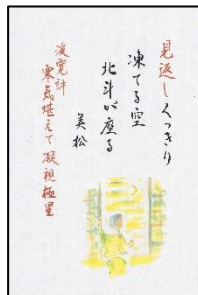 見返しくっきり
凍てる空
北斗が座る
美松
漢寛詳
寒気堪えて凝視極星